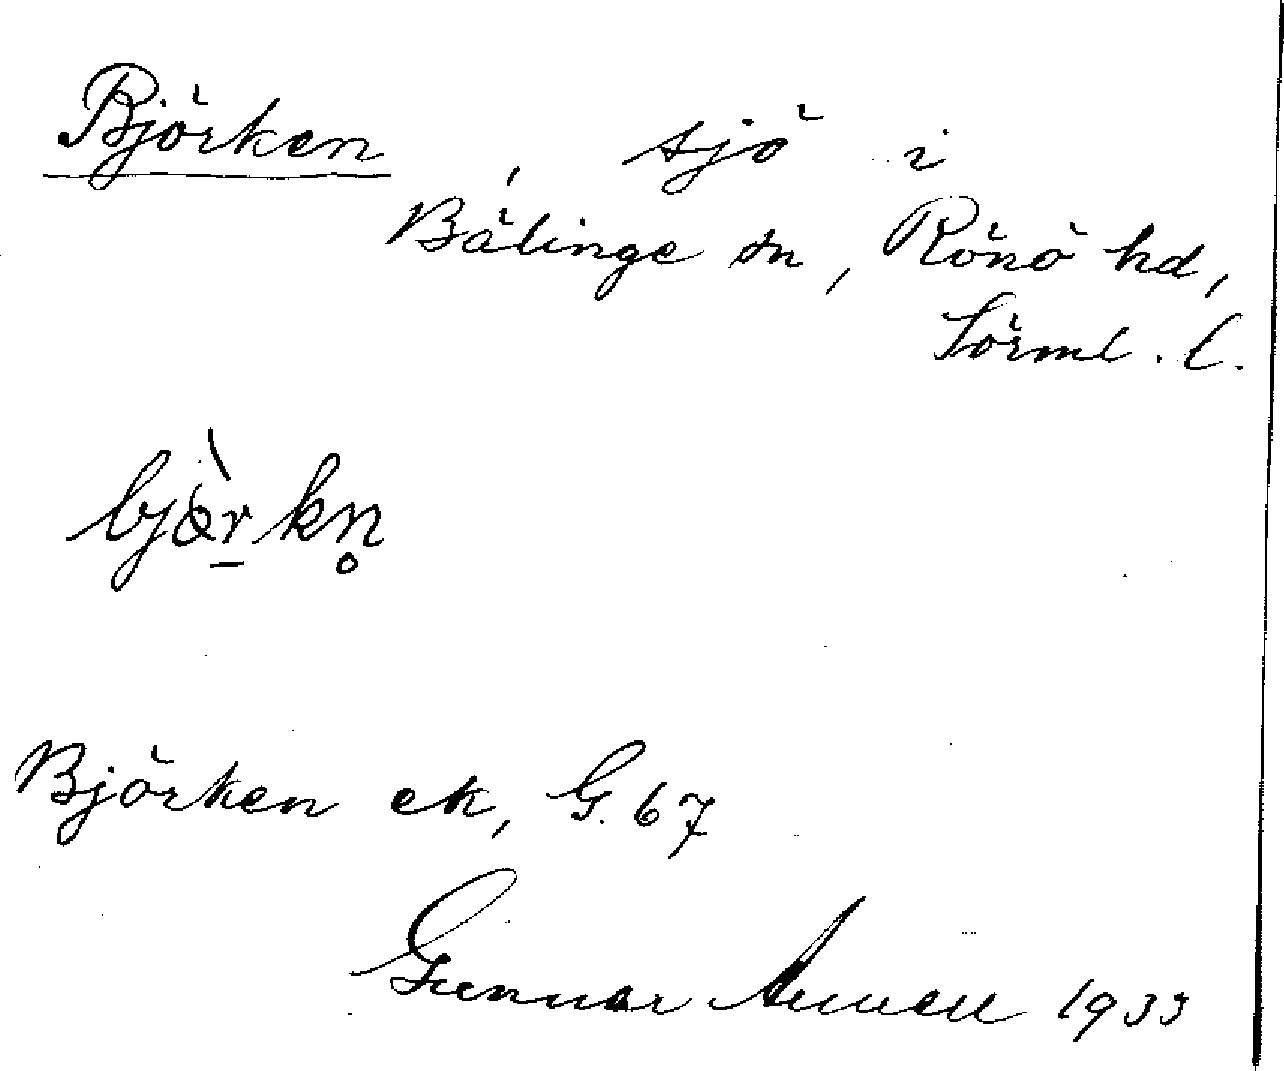 Björken, sjö i
Bälinge sn, Rönö hd,
Sörml. l.
bjὰrkn̥
Björken ek, G. 67
Gunnar 1933